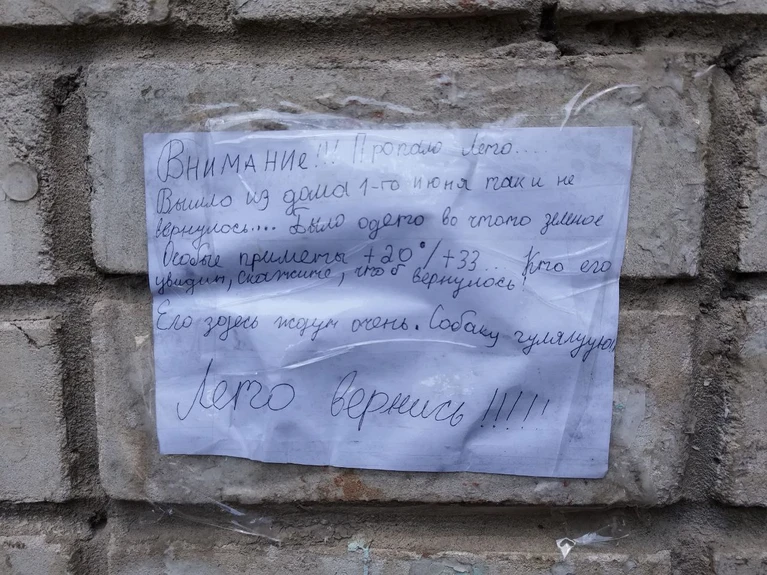 Внимание!!! Пропало Лето....
Вышло из дома 1-го июня так и не
вернулось.... Было одето во чтото зеленое
Особые приметы +20°/+33... Кто его
увидит, скажите, чтоб вернулось!
Его здесь ждут очень. Собаку
Лето вернись!!!!!